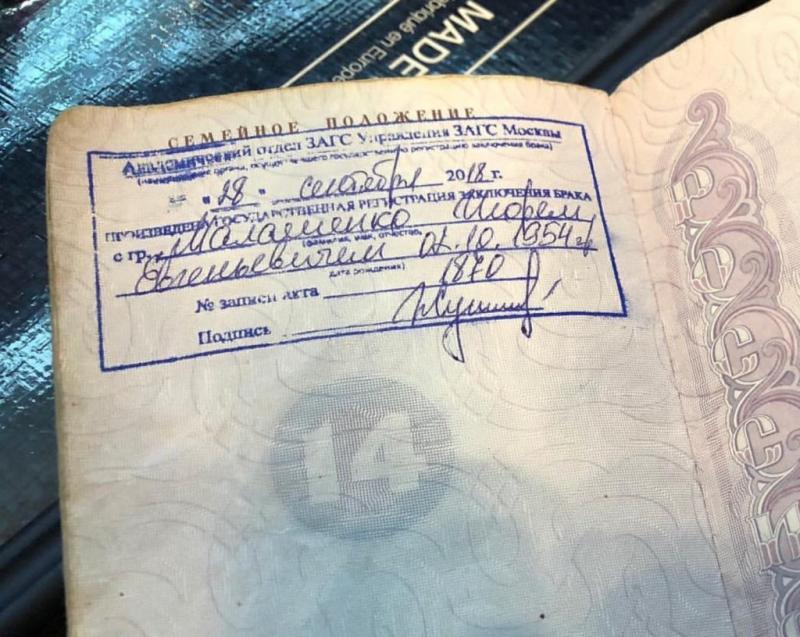 MADE
Fabriqué en Europe
СЕМЕЙНОЕ ПОЛОЖЕНИЕ
Академический отдел ЗАГС Управления ЗАГС Москвы
(наименование органа, осуществившего государственную регистрацию заключения брака)
"28" сентября 2018 г.
ПРОИЗВЕДЕНА ГОСУДАРСТВЕННАЯ РЕГИСТРАЦИЯ ЗАКЛЮЧЕНИЯ БРАКА
с гр. Малашенко Игорем
(фамилия, имя, отчество,
Евгеньевичем 02.10.1954 г.
дата рождения)
№ записи акта 1870
Подпись
14